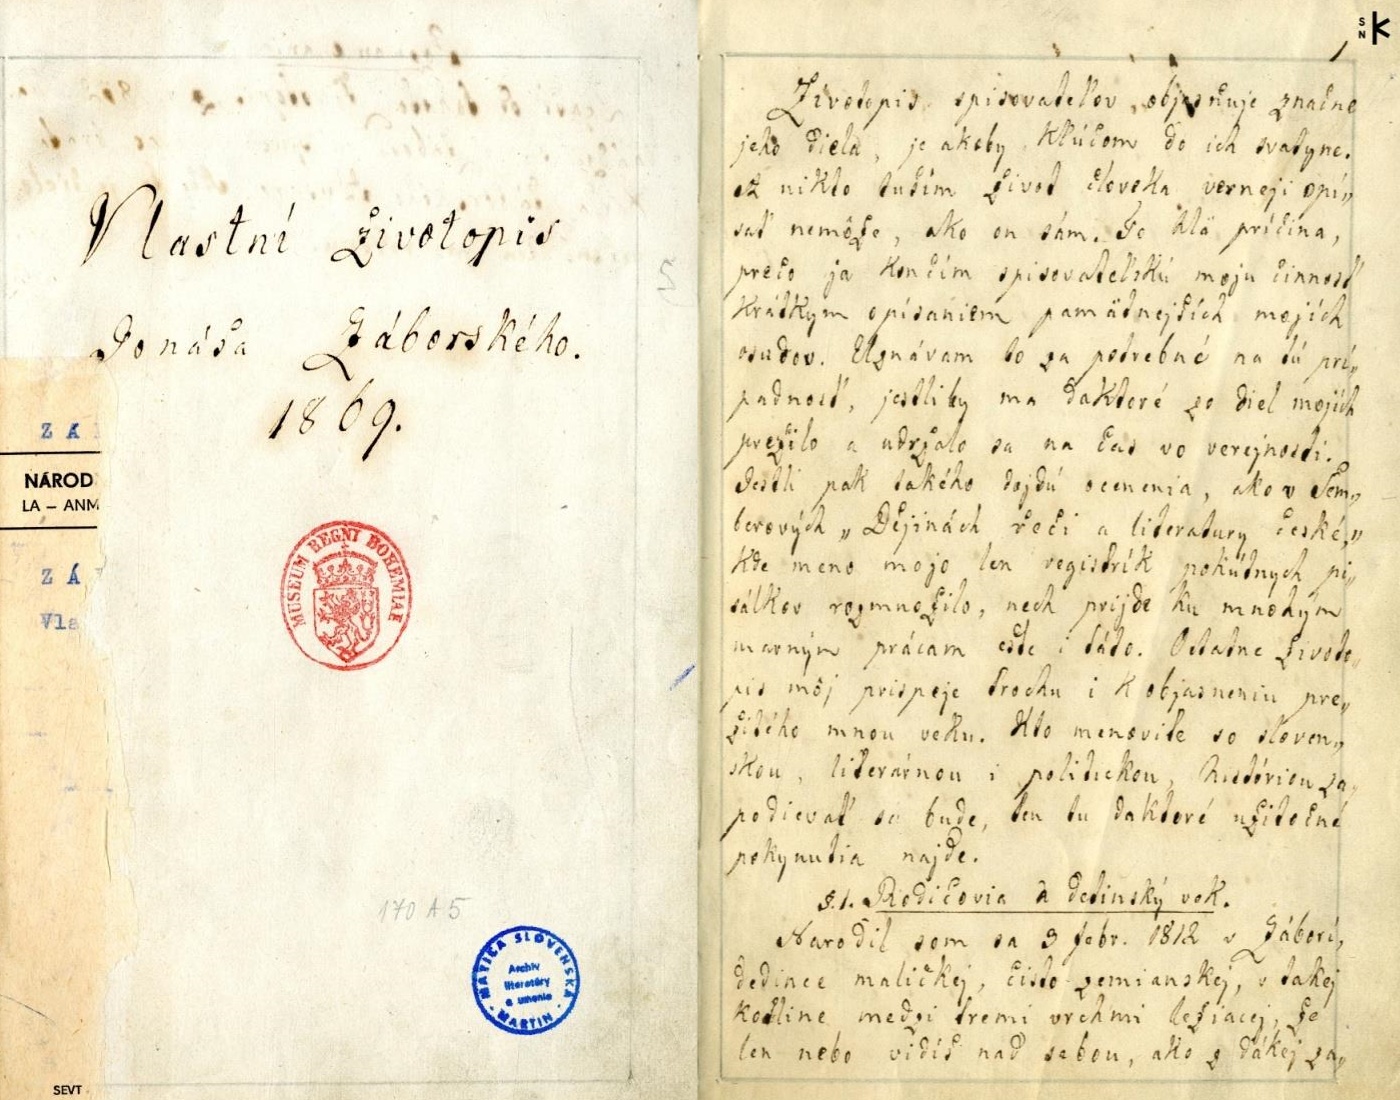 Vlastní životopis
Jonáša Záborského.
1869.
Z Á
NÁROD
LA – ANM
Z Á
Vla
MUSEUM REGNI BOHEMIAE
170 A 5
MATICA SLOVENSKÁ
Archív
literatúry
a umenia
MARTIN
SEVT
SNK
1
5
Životopis spisovateľov objasňuje značne
jeho diela, je akoby kľúčom do ich svatyne.
A nikto tuším život človeka vernejí opí„
sať nemôže, ako on sám. To hľa príčina,
prečo ja končím spisovateľskú moju činnosť
krátkym opísaniem pamätnejších mojích
osudov. Uznávam to za potrebné na tú prí„
padnosť, jestliby ma daktoré zo diel mojích
prežilo a udržalo sa na čas vo verejnosti.
Jestli pak takého dojdú ocenenia, ako v Šem„
berových „Dějinách řeči a literatury české,„
kde meno mojo len registrík pokútnych pi„
sálkov rozmnožilo, nech príjde ku mnohým
marným prácam ešte i táto. Ostatne životo„
pis môj prispeje trochu i k objasneniu pre„
žitého mnou veku. Kto menovite so sloven„
skou, literárnou i politickou, históriou za„
podievať sa bude, ten tu daktoré užitočné
pokynutia najde.
§.1. Rodičovia a detinský vek.
Narodil som sa 3 febr. 1812 v Záborí,
dedince maličkej, čisto zemianskej, v takej
kotline medzi tremi vrchmi ležiacej, že
len nebo vidíš nad sebou, ako z dákej za„